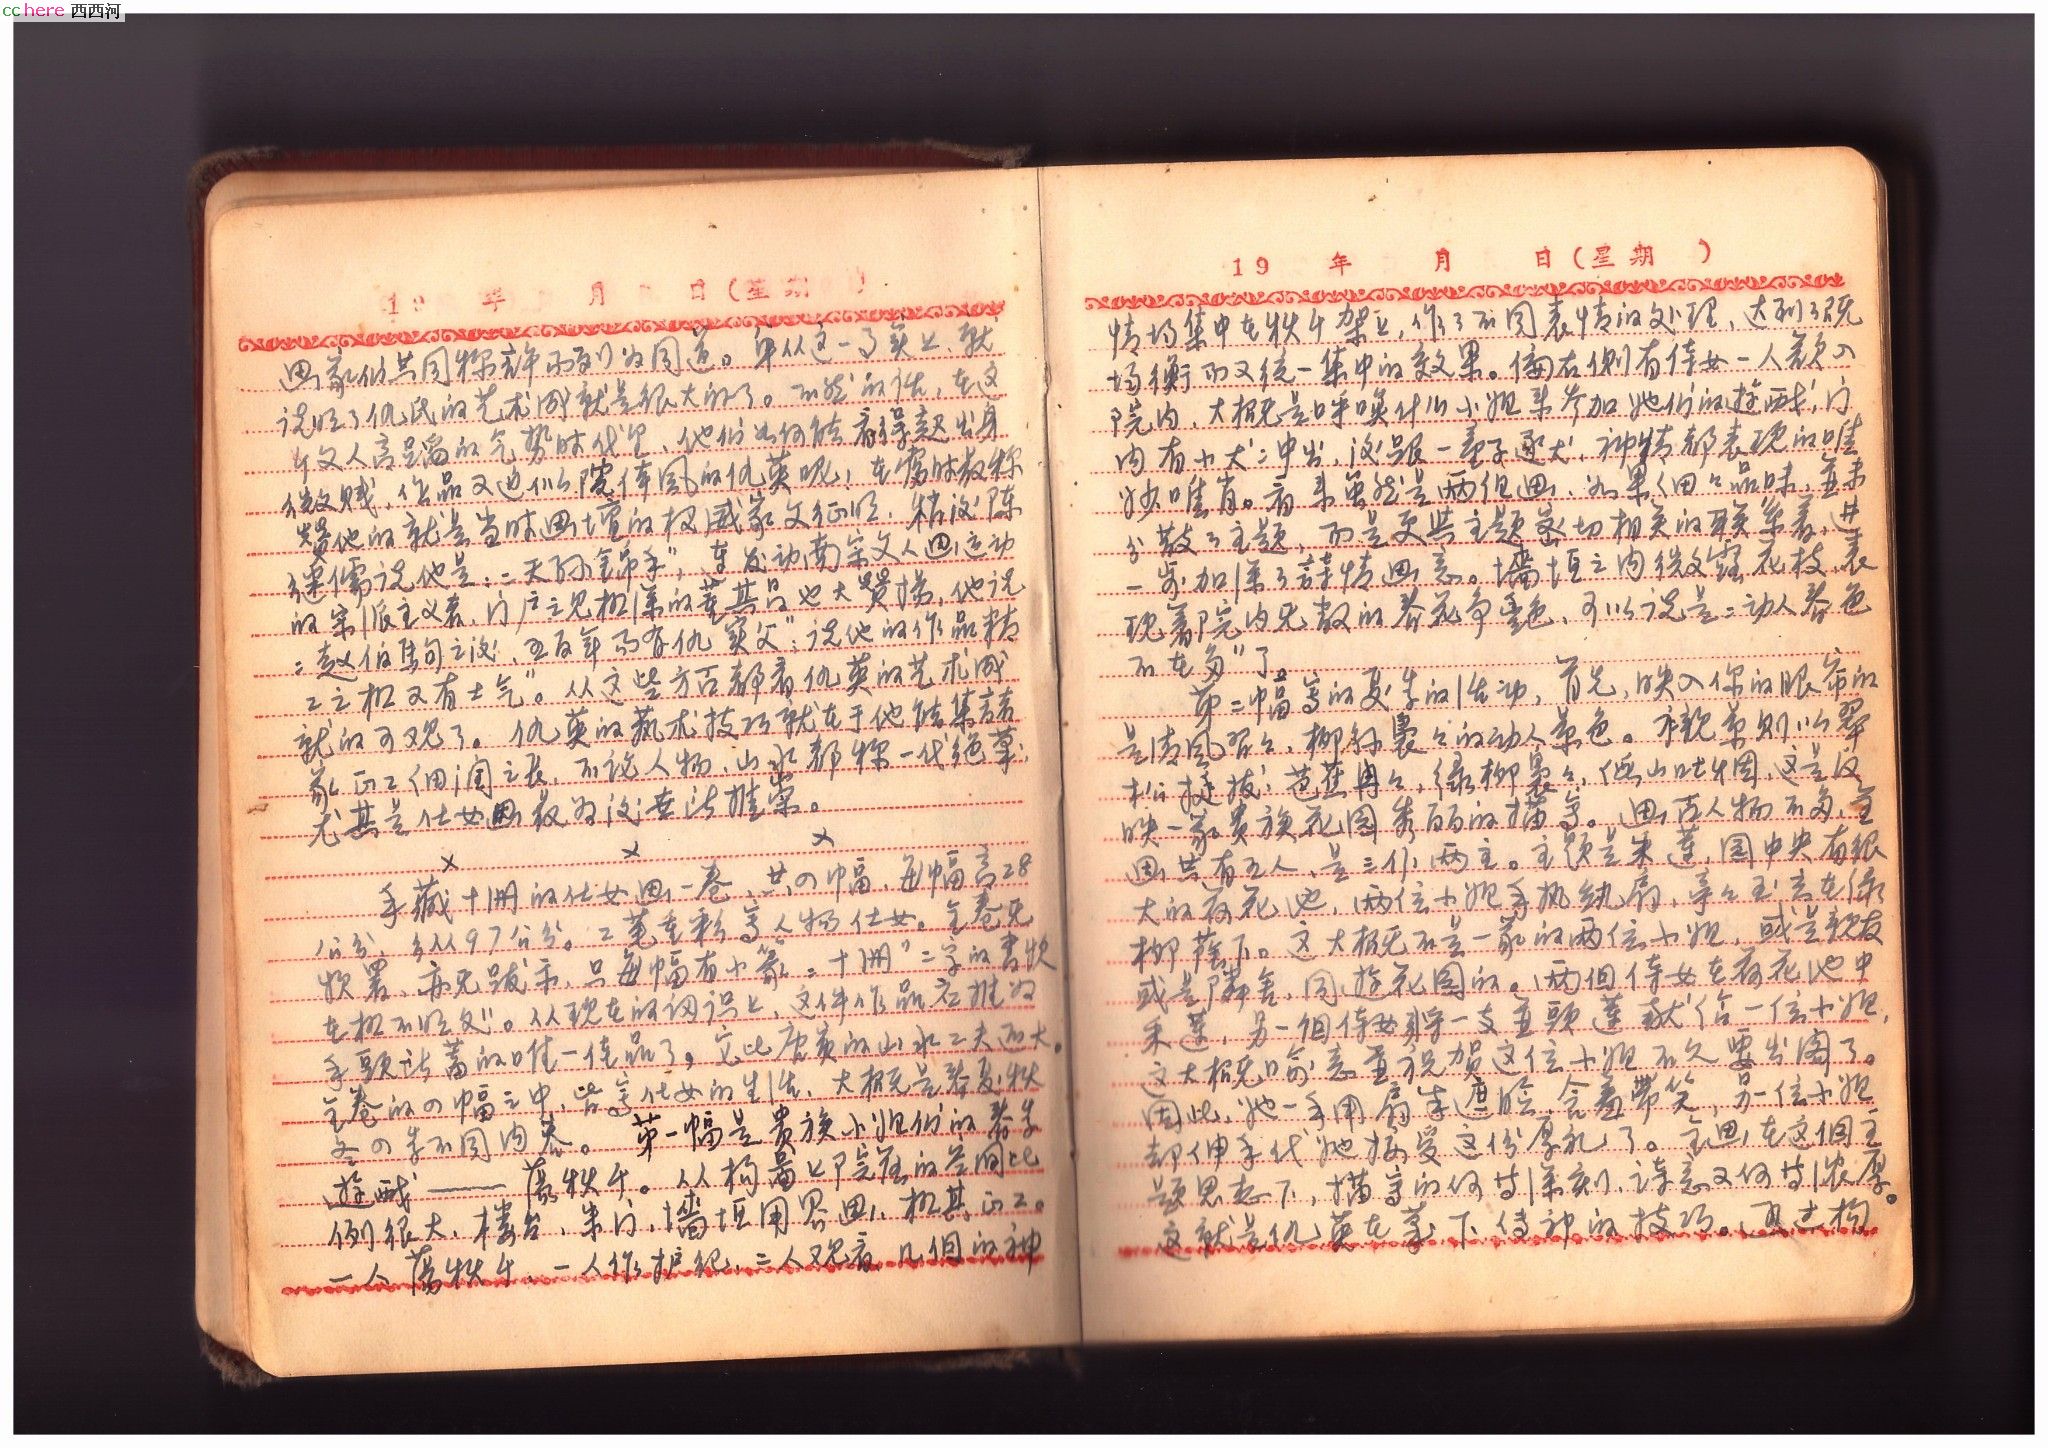 cchere 西西河
19 年 月 日(星期 )
画家们共同称许而列为同道。单从这一事实上,就
说明了仇氏的艺术成就是很大的了。不然的话,在文
人高蹈的气势时代里,他们如何能看得起出身
微贱,作品又近似院体风的仇英呢,在当时教称
赞他的就是当时画坛的权威家文征明,稍后陈
继儒说他是:"天孙锦手",在发动南宗文人画运动
的宗派主义者,门户之见极深的董其昌也大赞扬,他说
"赵伯驹之后,五百年而有仇实父";说他的作品精
工之极又有士气"。从这些方面都看仇英的艺术成
就的可观了。仇英的艺术技巧就在于他能集诸
家正工细润之长,不论人物、山水都称一代绝笔,
尤其是仕女画最为后世所推崇。
× × ×
手藏十洲的仕女画一卷,共四幅,每幅高28
公分,纵97公分。工笔重彩写人物仕女。全卷无
款署,亦无跋示,只每幅有小篆"十洲"二字的書款
在极不明处"。从现在的认识上,这件作品应推为
手頭所蓄的唯一佳品了。它比唐寅的山水工夫還大。
全卷的四幅之中,皆写仕女的生活,大概是春夏秋
冬四季不同内容。 第一幅是贵族小姐们的春季
遊戏——荡秋千。从构图上院落的空间比
例很大,楼台,朱门,墙垣用界画,极其正工。
一人荡秋千,一人作护绳,三人观看,几個的神
19 年 月 日(星期 )
情均集中在秋千架上,作了不同表情的处理,达到了既
均衡而又统一集中的效果。偏右侧有侍女一人欲入
院内,大概是呼唤什么小姐来参加她们的遊戏,门
内有小犬冲出,後跟一童子逐犬,神情都表现的唯
妙唯肖。看来虽然是两组画,如果细々品味,並未
分散了主题,而是更与主题密切相关的联系着,进
一步加深了詩情画意。墙垣之内微露花枝,表
现着院内无数的春花争艳色,可以说是"动人春色
不在多"了。
第二幅写的夏季的活动,首先,映入你的眼帘的
是清风習々,柳絲裊々的动人景色。衬托景则以翠
松挺拔,芭蕉冉々,绿柳裊々,假山吐烟,这是反
映一家贵族花园秀丽的描写。画面人物不多,全
画共有五人,是三仆两主。主题是采蓮,園中央有很
大的荷花池,两位小姐手执纨扇,亭々玉立在绿
柳蔭下。这大概不是一家的两位小姐,或是親友
或是隣舍,同遊花园的。两個侍女在荷花池中
采蓮,另一個侍女将一支並頭蓮献给一位小姐,
这大概喻意並祝贺这位小姐不久要出阁了。
因此,她一手用扇半遮脸,含羞带笑,另一位小姐
却伸手代她接受这份厚礼了。全画在这個主
题思想下,描写的何等深刻,诗意又何等浓厚。
这就是仇英在笔下传神的技巧。再去构